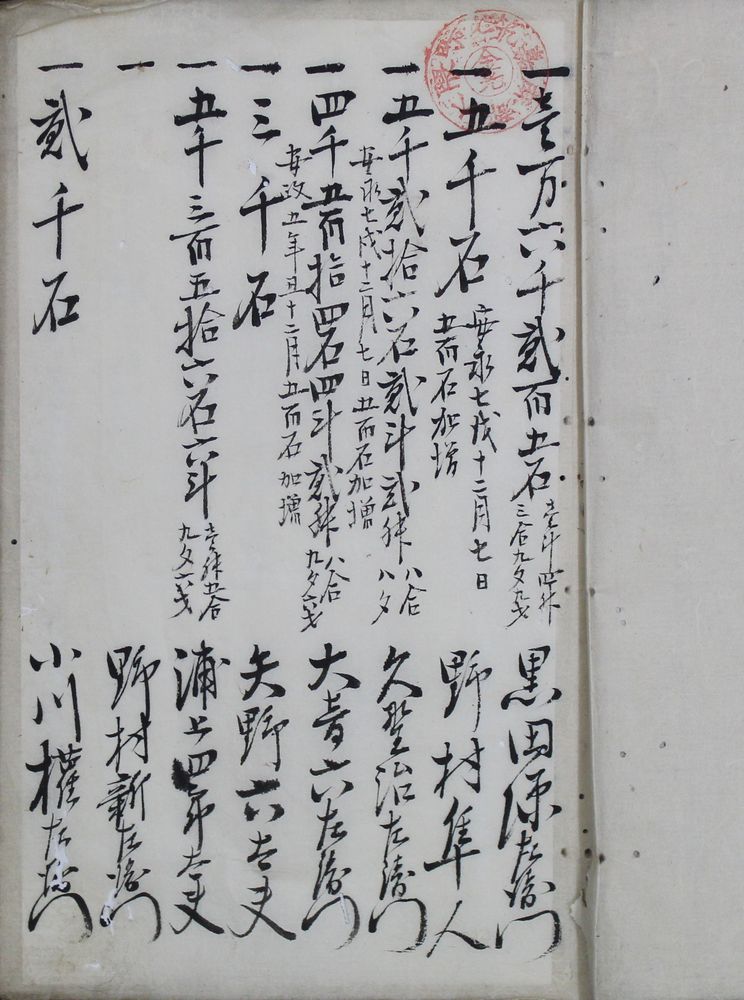 一壱万六千弐百五石 壱斗四升 三合九夕九才 黒田源左衛門
一五千石 安永七戌十二月七日 五百石加増 野村隼人
一五千弐拾六石弐斗弐升 八合 八夕 久野治左衛門
安永七戌十二月七日五百石加増
一四千五百拾四石四斗弐升 八合 九夕六才 大音六左衛門
安政五年 十二月五百石加増
一三千石 矢野六太夫
一五千三百五拾六石六斗 壱升五合 九夕六才 浦上四郎太夫
一 野村新左衛門
一弐千石 小川権左衛門